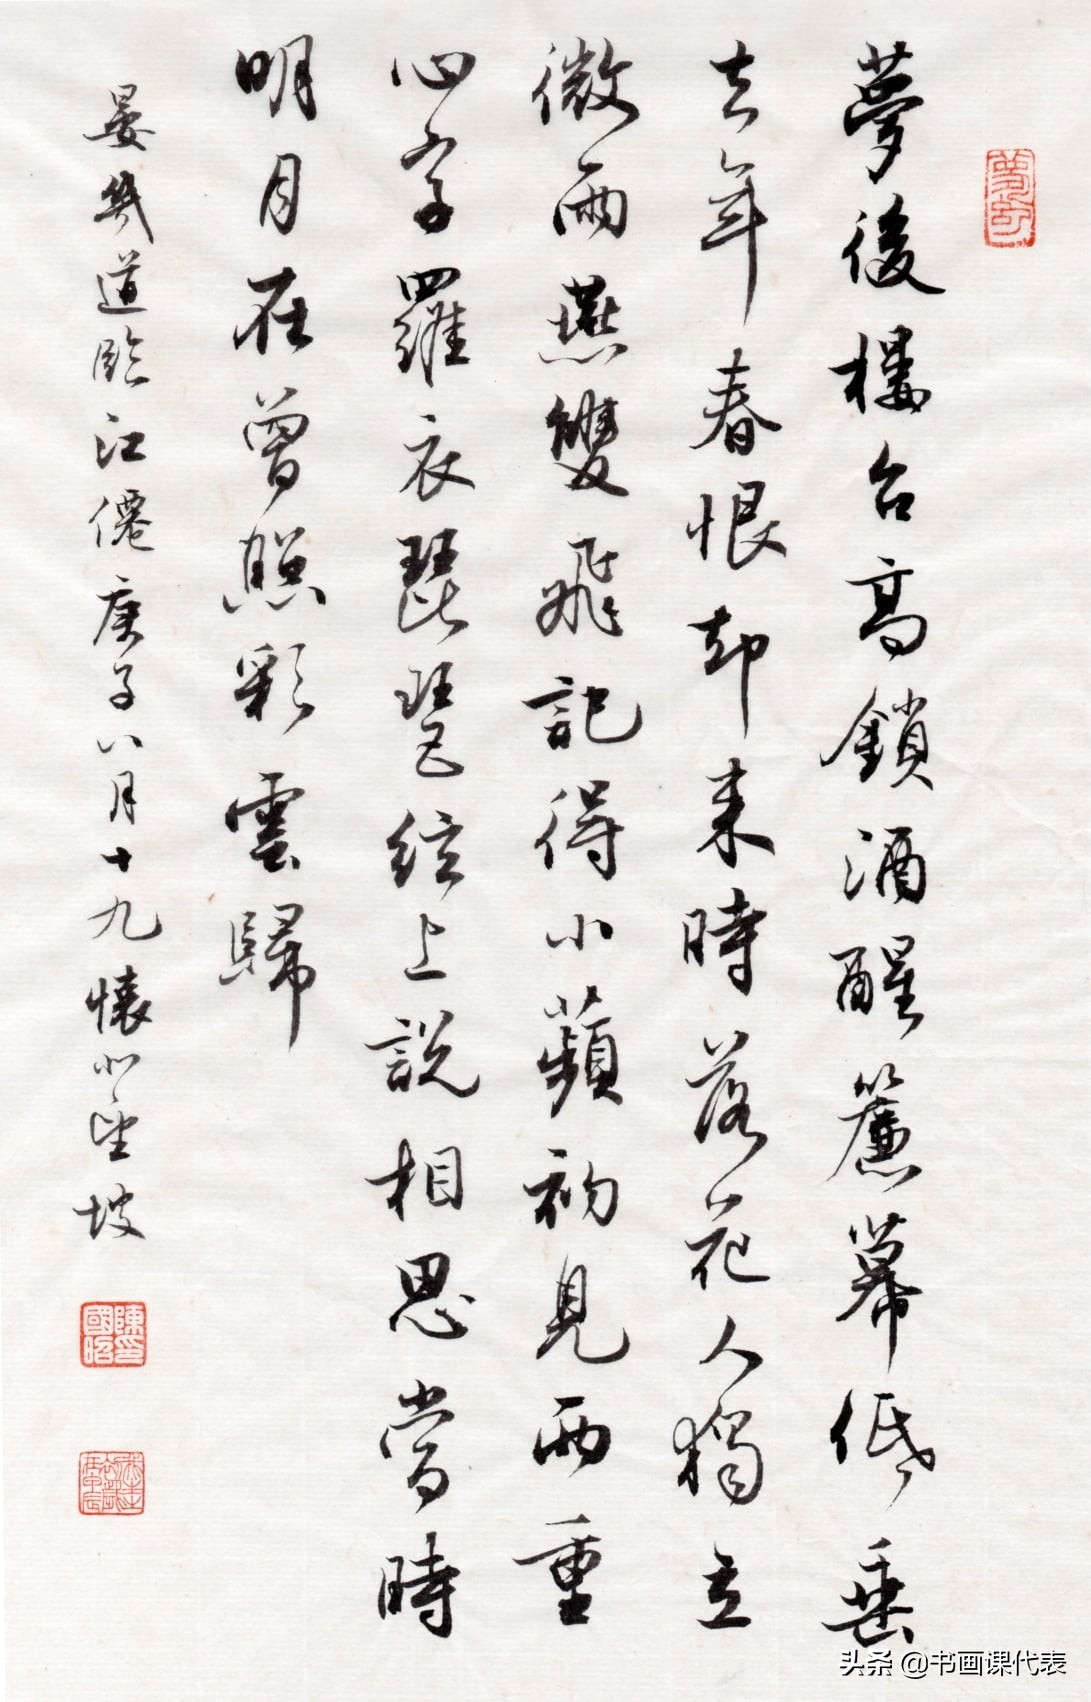 夢後樓台高鎖酒醒簾幕低垂
去年春恨却来時落花人獨立
微雨燕雙飛記得小蘋初見兩重
心字羅衣琵琶絃上說相思當時
明月在曾照彩雲歸
晏幾道臨江僊庚子八月十九懷北堂坡
陳國昭印
头条 @书画课代表